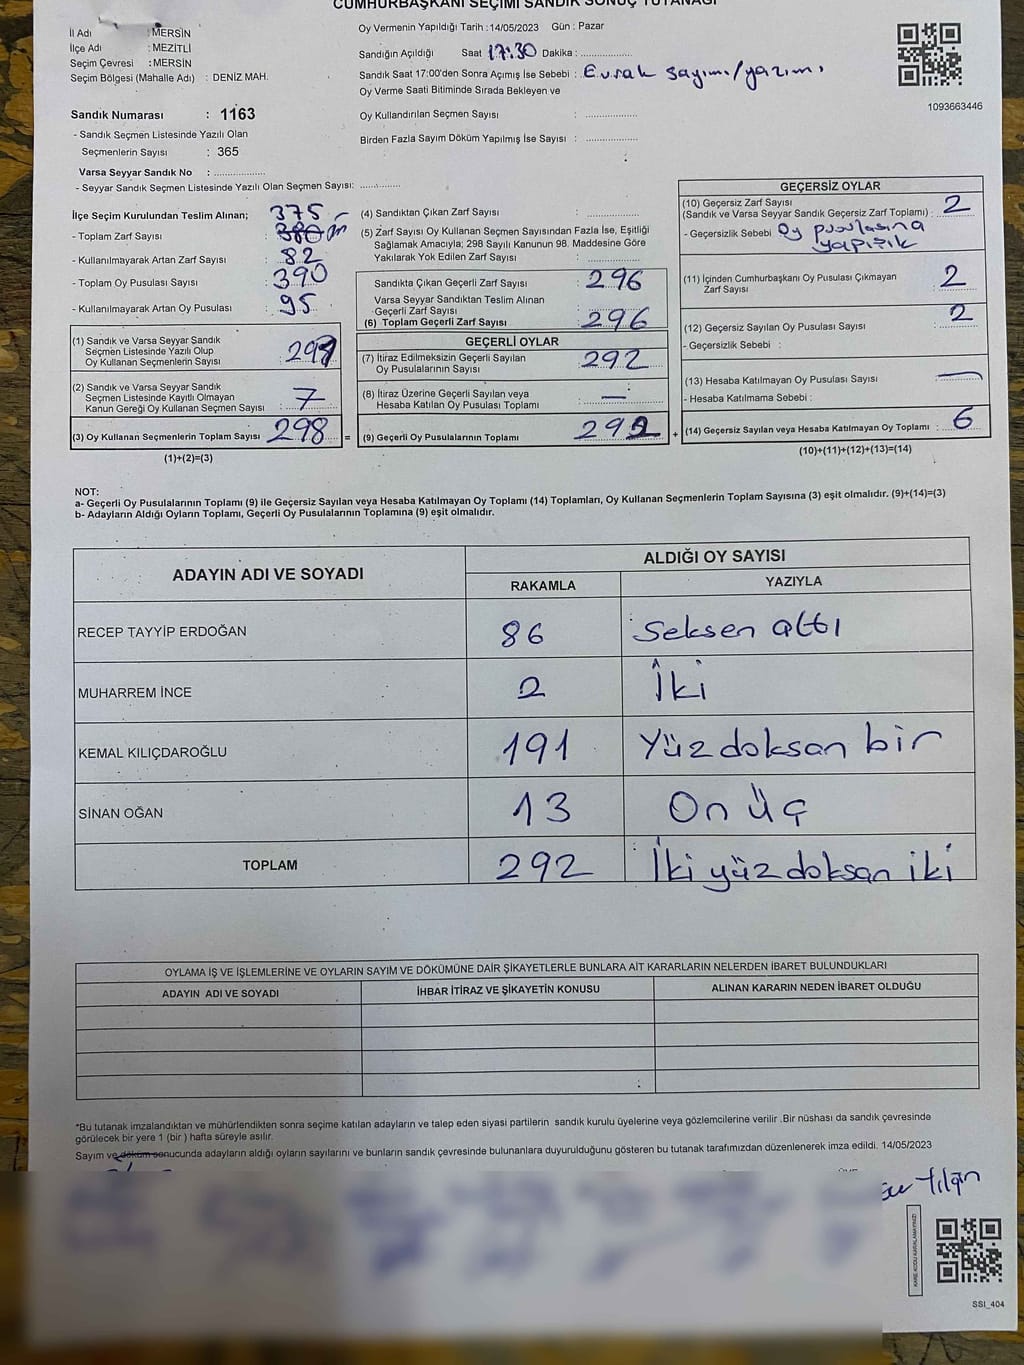 CUMHURBAŞKANI SEÇİMİ SANDIK SONUÇ TUTANAĞI
İl Adı : MERSİN
İlçe Adı : MEZİTLİ
Seçim Çevresi : MERSİN
Seçim Bölgesi (Mahalle Adı) : DENİZ MAH.
Sandık Numarası : 1163
- Sandık Seçmen Listesinde Yazılı Olan
Seçmenlerin Sayısı : 365
Varsa Seyyar Sandık No : ....................
- Seyyar Sandık Seçmen Listesinde Yazılı Olan Seçmen Sayısı: ............
Oy Vermenin Yapıldığı Tarih : 14/05/2023 Gün : Pazar
Sandığın Açıldığı Saat 17:30 Dakika : ................
Sandık Saat 17:00'den Sonra Açımış İse Sebebi : Evrak sayımı/yazımı
Oy Verme Saati Bitiminde Sırada Bekleyen ve
Oy Kullandırılan Seçmen Sayısı : ................
Birden Fazla Sayım Döküm Yapılmış İse Sayısı : ................
1093663446
İlçe Seçim Kurulundan Teslim Alınan; 375
- Toplam Zarf Sayısı : 380
- Kullanılmayarak Artan Zarf Sayısı : 82
- Toplam Oy Pusulası Sayısı : 390
- Kullanılmayarak Artan Oy Pusulası : 95
(1) Sandık ve Varsa Seyyar Sandık
Seçmen Listesinde Yazılı Olup
Oy Kullanan Seçmenlerin Sayısı :
(2) Sandık ve Varsa Seyyar Sandık
Seçmen Listesinde Kayıtlı Olmayan
Kanun Gereği Oy Kullanan Seçmen Sayısı : 7
(3) Oy Kullanan Seçmenlerin Toplam Sayısı : 298 =
(1)+(2)=(3)
(4) Sandıktan Çıkan Zarf Sayısı : ................
(5) Zarf Sayısı Oy Kullanan Seçmen Sayısından Fazla İse, Eşitliği
Sağlamak Amacıyla; 298 Sayılı Kanunun 98. Maddesine Göre
Yakılarak Yok Edilen Zarf Sayısı : ................
Sandıkta Çıkan Geçerli Zarf Sayısı : 296
Varsa Seyyar Sandıktan Teslim Alınan
Geçerli Zarf Sayısı :
(6) Toplam Geçerli Zarf Sayısı : 296
GEÇERLİ OYLAR
(7) İtiraz Edilmeksizin Geçerli Sayılan
Oy Pusulalarının Sayısı : 292
(8) İtiraz Üzerine Geçerli Sayılan veya
Hesaba Katılan Oy Pusulası Toplamı : —
(9) Geçerli Oy Pusulalarının Toplamı : 292 +
GEÇERSİZ OYLAR
(10) Geçersiz Zarf Sayısı
(Sandık ve Varsa Seyyar Sandık Geçersiz Zarf Toplamı) : 2
- Geçersizlik Sebebi : Oy pusulasına
yapışık
(11) İçinden Cumhurbaşkanı Oy Pusulası Çıkmayan
Zarf Sayısı : 2
(12) Geçersiz Sayılan Oy Pusulası Sayısı : 2
- Geçersizlik Sebebi :
(13) Hesaba Katılmayan Oy Pusulası Sayısı : —
- Hesaba Katılmama Sebebi :
(14) Geçersiz Sayılan veya Hesaba Katılmayan Oy Toplamı : 6
(10)+(11)+(12)+(13)=(14)
NOT:
a- Geçerli Oy Pusulalarının Toplamı (9) ile Geçersiz Sayılan veya Hesaba Katılmayan Oy Toplamı (14) Toplamları, Oy Kullanan Seçmenlerin Toplam Sayısına (3) eşit olmalıdır. (9)+(14)=(3)
b- Adayların Aldığı Oyların Toplamı, Geçerli Oy Pusulalarının Toplamına (9) eşit olmalıdır.
ADAYIN ADI VE SOYADI ALDIĞI OY SAYISI
RAKAMLA YAZIYLA
RECEP TAYYİP ERDOĞAN 86 Seksen altı
MUHARREM İNCE 2 İki
KEMAL KILIÇDAROĞLU 191 Yüz doksan bir
SİNAN OĞAN 13 On üç
TOPLAM 292 İki yüz doksan iki
OYLAMA İŞ VE İŞLEMLERİNE VE OYLARIN SAYIM VE DÖKÜMÜNE DAİR ŞİKAYETLERLE BUNLARA AİT KARARLARIN NELERDEN İBARET BULUNDUKLARI
ADAYIN ADI VE SOYADI İHBAR İTİRAZ VE ŞİKAYETİN KONUSU ALINAN KARARIN NEDEN İBARET OLDUĞU
*Bu tutanak imzalandıktan ve mühürlendikten sonra seçime katılan adayların ve talep eden siyasi partilerin sandık kurulu üyelerine veya gözlemcilerine verilir .Bir nüshası da sandık çevresinde
görülecek bir yere 1 (bir ) hafta süreyle asılır.
Sayım ve döküm sonucunda adayların aldığı oyların sayılarını ve bunların sandık çevresinde bulunanlara duyurulduğunu gösteren bu tutanak tarafımızdan düzenlenerek imza edildi. 14/05/2023
KARE KODU KARALAMAYINIZ!
SSI_404